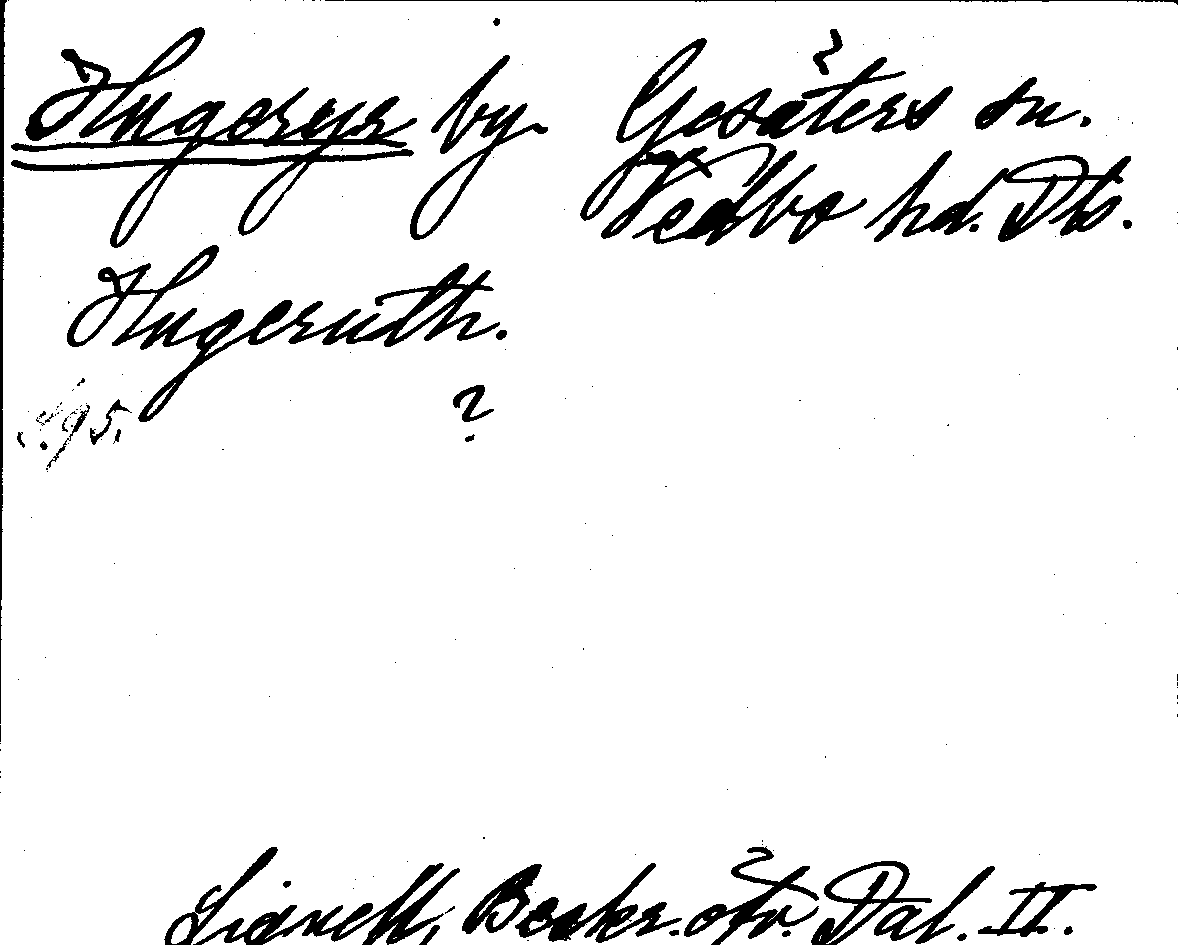 Hugeryr by Gesäters sn.
Vedbo hd. Dls.
Hugeruth.
S. 95. ?
Lignell, Beskr. öfv. Dal. II.